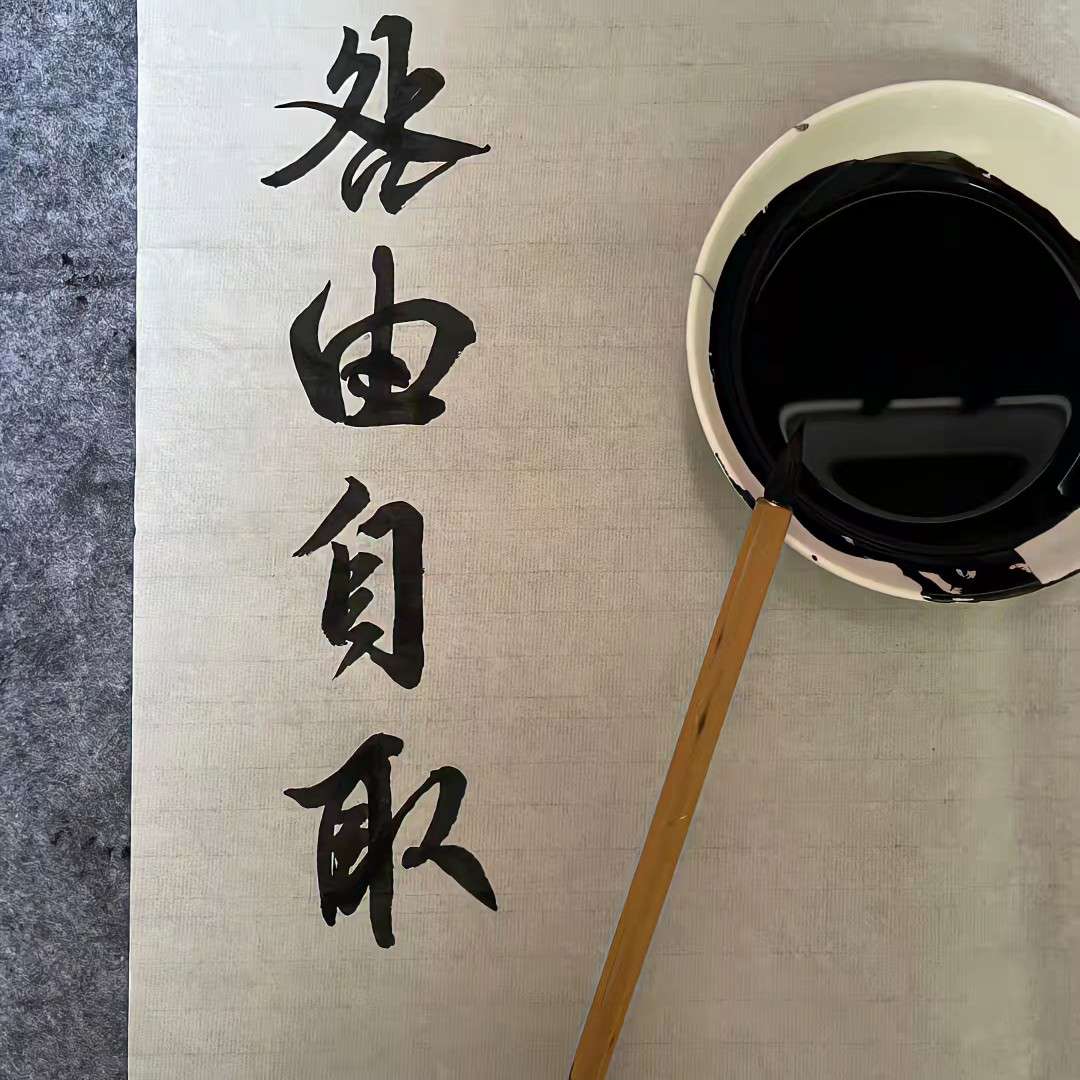 咎由自取